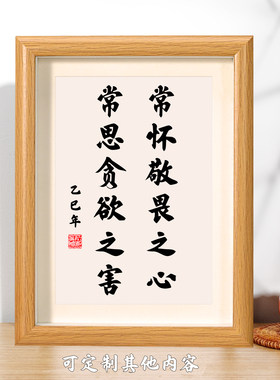 常怀敬畏之心
常思贪欲之害
乙巳年
可定制其他内容